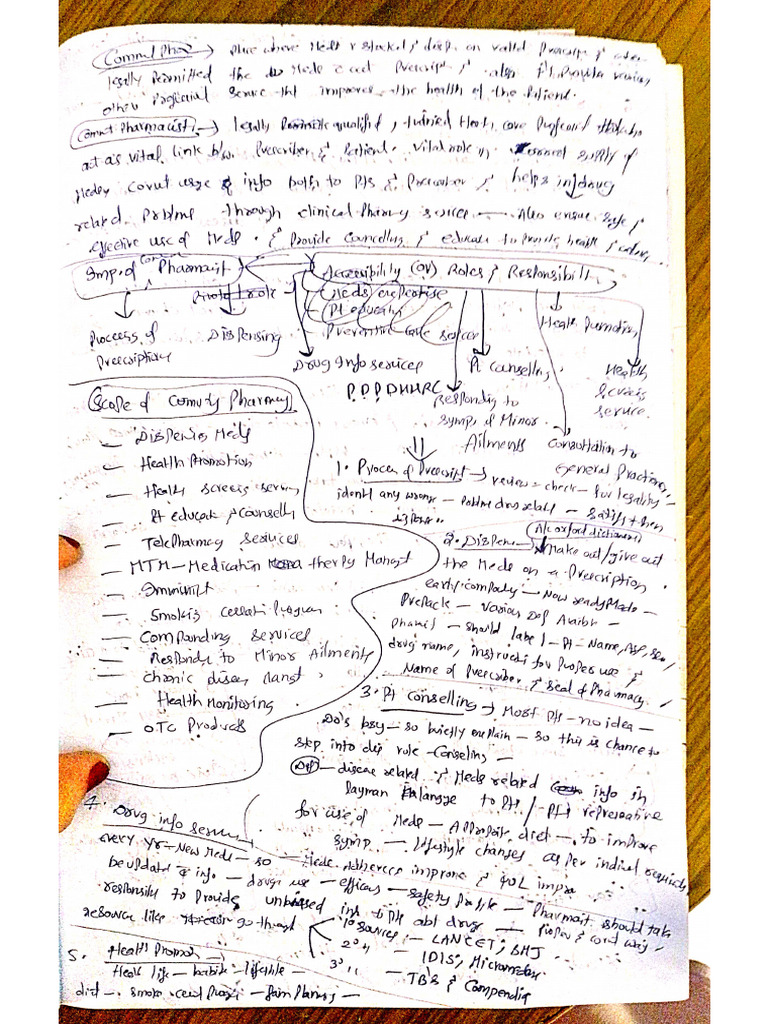 Commut Phar → Place where Meds r stocked & disp. on valid Prescrip & other
legally Permitted the dis Meds & out Prescript & also it Provides various
other Proficional Service tht improves the health of the Patient.
Commut Pharmacist → legally qualified, trained Health care Profesional
act as vital link b/w. Prescriber & Patient. Vital role in correct supply of
Medes corect usage & info both to Pts & Prescriber & helps in drug
related Problms through clinical Pharmy services — Also ensue safe &
effective use of Meds. & Provide Councelling & educate to provide health &
Imp. of Comut Pharmaist
Accessibility (or) Roles & Responsibilt
Pivotal role
Process of Prescription
Dispensing
Meds expertise
Pt educatn
Preventive care service
Drug Info services
P.P.P DHHRC
Pt Counselling
Responding to
Symp. of Minor
Ailments
Health Promotion
Consultation to
General Practioner
Health
Screeis
Service.
Scope of Comuty Pharmacy
— Dispensing Meds
— Health Promotion
— Health screeig servic
— Pt educatn & counselln
— Telepharmacy Services
— MTM – Medication therapy Managt
— Immunizt
— Smokis cessati Program
— Compounding services
— Respondg to Minor Ailments
— chronic diseas Mangt
— Health Monitoring
— OTC Products
1. Proces of Prescript → review = check – for legality –
identi any wrong – Potntial drug relatd – satisfy then
dispense..
Acc. oxford dictionary
2. Dispens → Make out/give out
the Meds on a Prescription.
early. company – Now ready Made –
PrePack – Various Dos Availbl –
Pharmst – should label – Pt – Name, Age, Sex,
drug name, instructi for Proper use &
Name of Prescriber & seal of Pharmacy.
3. Pt conselling → Most Pts – no idea –
Do's busy – so briefly explain – so this is chance to
step into dis role – Conseling –
Def – disease related & Meds related info in
layman langage to Pts / Pts represenative
for use of Meds – Appropriate. diet – to improve
symp. – lifestyle changes as per individ requirmts
Meds. Adherece improve & QOL impro
4. Drug info servic
every yr – New Meds – so
be updated & info – drug use – efficay – safety Profile – Pharmaist should take
responsiblt to Provide unbiased info to Pts abt drug – Proper & corect way –
resource like go through
1° sources :– LANCET, BMJ
2° " – IDIS, Micromedex
3° " – TB's & Compendia
5. Health Promon
Health life – habits – lifestyle –
diet – smoke cesst Progr – Fam Planing –